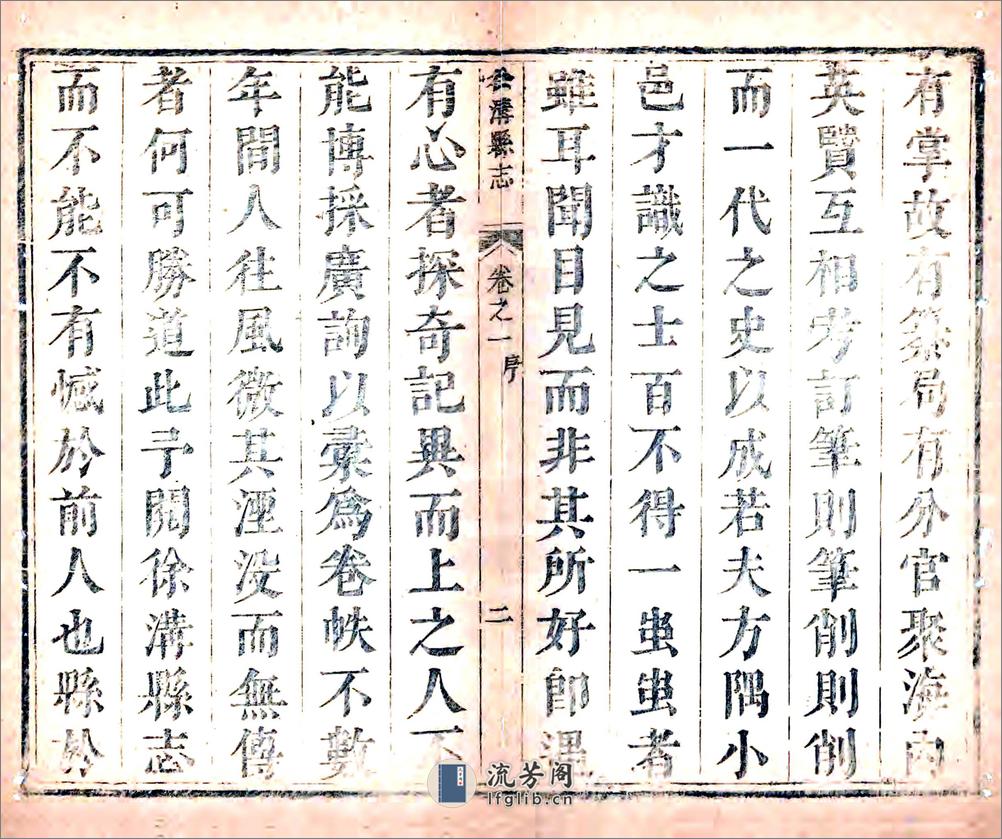 有掌故有纂局有分官聚海内
英賢互相考訂筆則筆削則削
而一代之史以成若夫方隅小
邑才識之士百不得一蚩蚩者
雖耳聞目見而非其所好卽遇
徐溝縣志 卷之一 序 二
有心者探奇記異而上之人不
能博採廣詢以彙爲卷帙不數
年間人往風微其湮没而無傳
者何可勝道此予閱徐溝縣志
而不能不有憾於前人也縣於
流芳阁
lfglib.cn